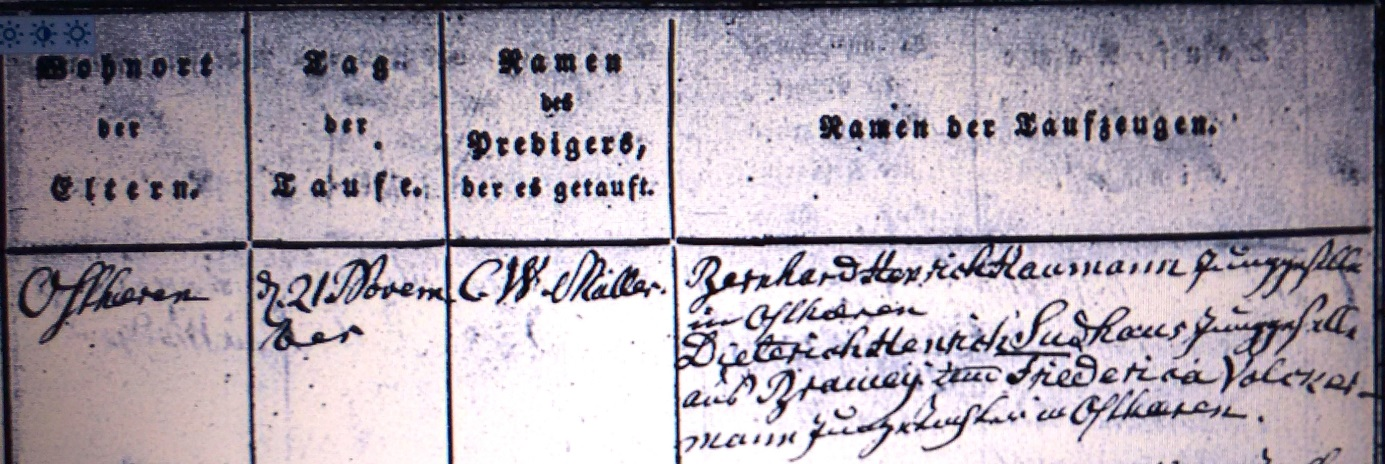 Wohnort
der
Eltern.
Tag
der
Taufe.
Namen
des
Predigers,
der es getauft.
Namen der Taufzeugen.
Osthæren
d. 21 Novem
ber
C. W. Müller.
Bernhard Henrich Naumann Junggeselle
in Osthæren
Dieterich Henrich Sudhaus Junggeselle
aus Bramey Friederica Volcker-
mann in Osthæren.